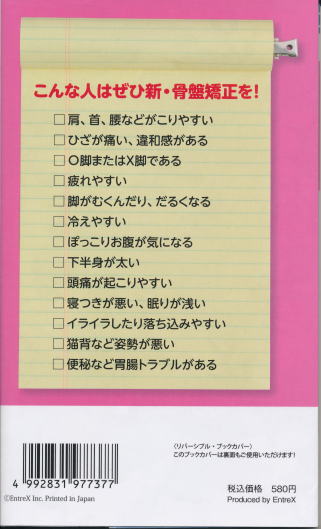 こんな人はぜひ新・骨盤矯正を!
□肩、首、腰などがこりやすい
□ひざが痛い、違和感がある
□O脚またはX脚である
□疲れやすい
□脚がむくんだり、だるくなる
□冷えやすい
□ぽっこりお腹が気になる
□下半身が太い
□頭痛が起こりやすい
□寝つきが悪い、眠りが浅い
□イライラしたり落ち込みやすい
□猫背など姿勢が悪い
□便秘など胃腸トラブルがある
〈リバーシブル・ブックカバー〉
このブックカバーは裏面もご使用いただけます!
4 992831 977377
©EntreX Inc. Printed in Japan
税込価格 580円
Produced by EntreX